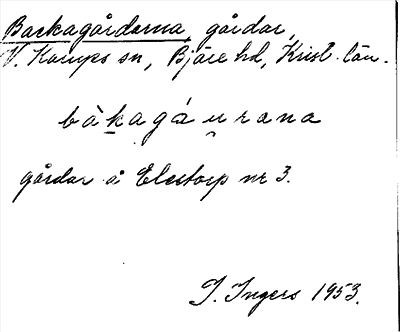 Backagårdarna, gårdar,
V. Karups sn, Bjäre hd, Krist. län.
bàkagáu̯rana
gårdar å Elestorp nr 3.
I. Ingers 1953.